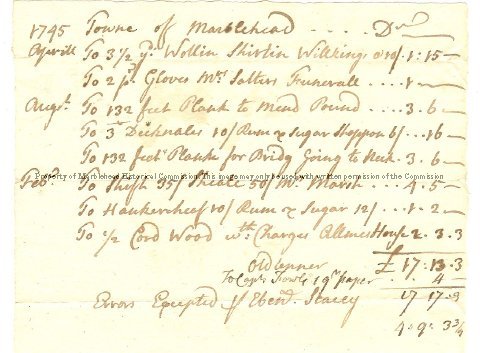 1745 Towne of Marblehead .... Dr
Aprill To 3 1/2 yd Wollin Shirtin Wilkring @ 10/ 1:15 -
To 2 pr Gloves Mrs Salters Funerall .... 1 -
Augst To 132 feet Plank to Mend Pound .... 3 . 6 -
To 3 Ducknales 10/ Rum & Sugar 6/ .. 16 -
To 132 feet Plank for Bridg Going to Neck . 3 . 6 -
Property of Marblehead Historical Commission This image may only be used with written permission of the Commission
Feb To Shift 35/ Sheate 50/ Mrs Marsh .. 4 . 5 -
To Hankersheef 10/ Rum & Sugar 12/ ... 1 . 2 -
To 1/2 Cord Wood wth Charges Allmes House 2 . 3 . 3
Old tenner £ 17 : 13 . 3
To 19 paper .. 4 -
17 17 . 3
Errors Excepted Ebenr Stacey
4 . 9 : 3 3/4